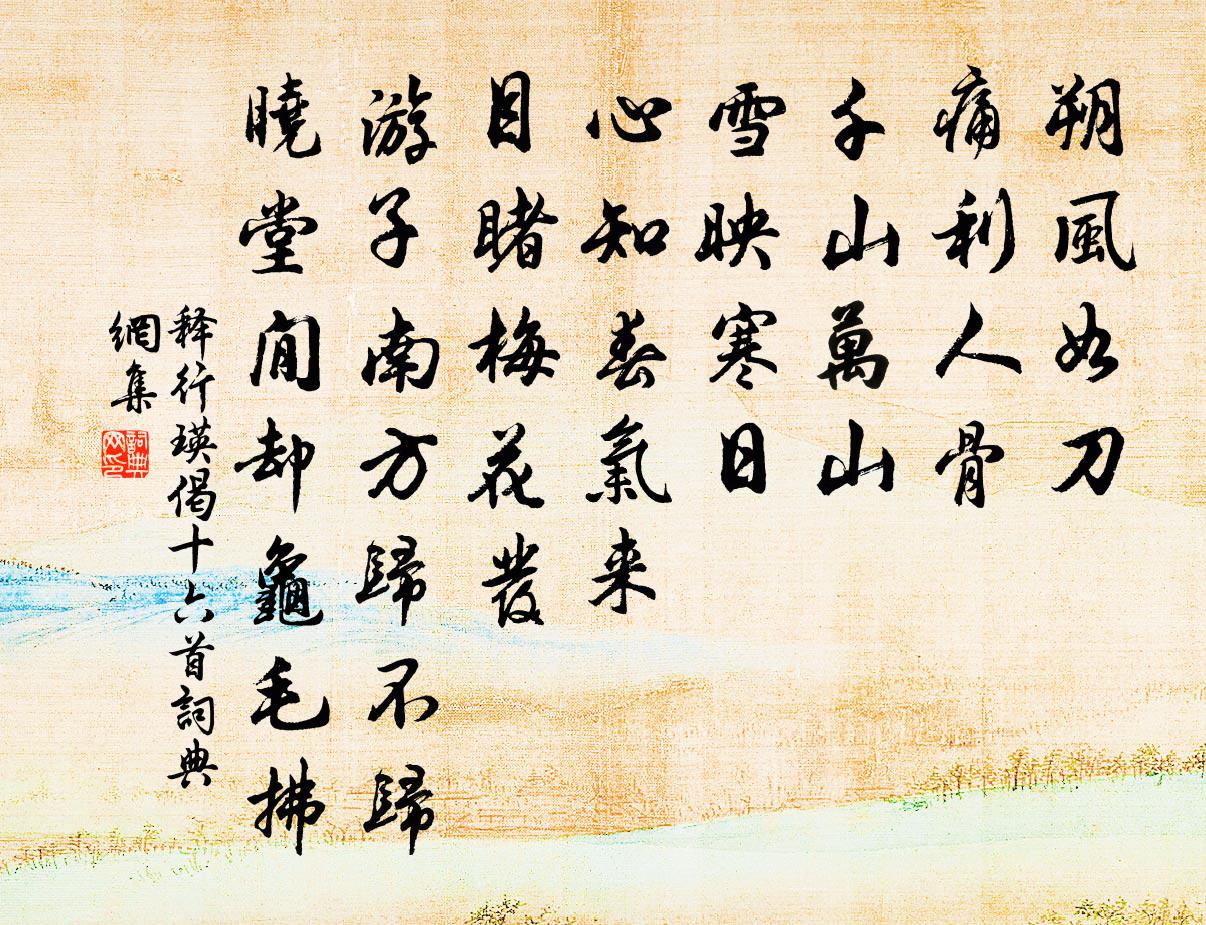 朔風如刀
痛利人骨
千山萬山
雪映寒日
心知春氣来
目睹梅花發
游子南方歸不歸
曉堂閒却龜毛拂
释行瑛偈十六首詞典
網集
詞典
网印